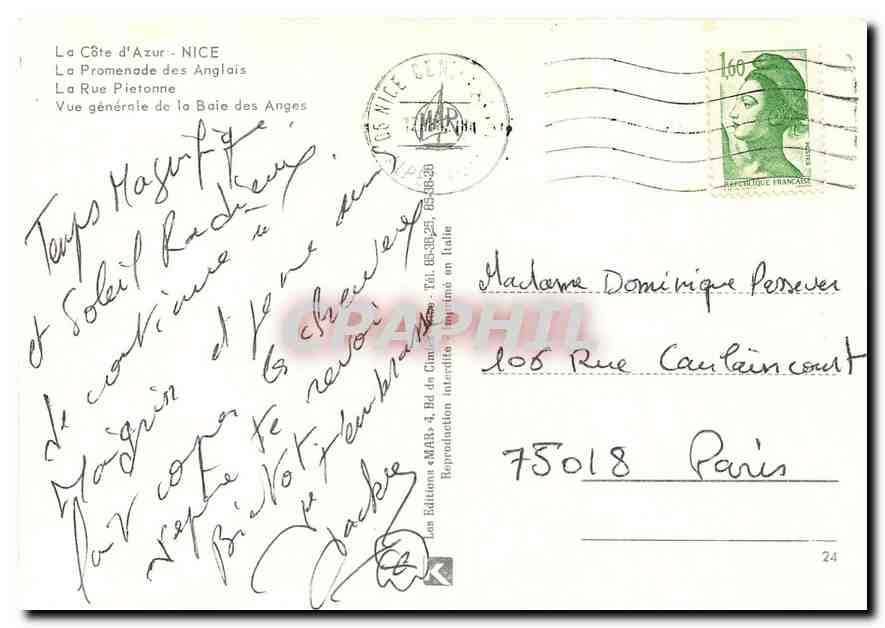 La Côte d'Azur - NICE
La Promenade des Anglais
La Rue Pietonne
Vue générale de la Baie des Anges
06 NICE
1,60
REPUBLIQUE FRANÇAISE
Temps Magnifique
et Soleil Radieux
Je continue à
Maigrir et je me suis
fait couper les cheveux
J'espère te revoir
Bientot je t'embrasse
Jackie
Les Editions «MAR» 4, Bd de - Tél. 85-36-25, 85-36-26
Reproduction interdite - Imprimé en Italie
MAR
CPAPHIL
Madame Dominique
106 Rue Caulaincourt
75018 Paris
K
24